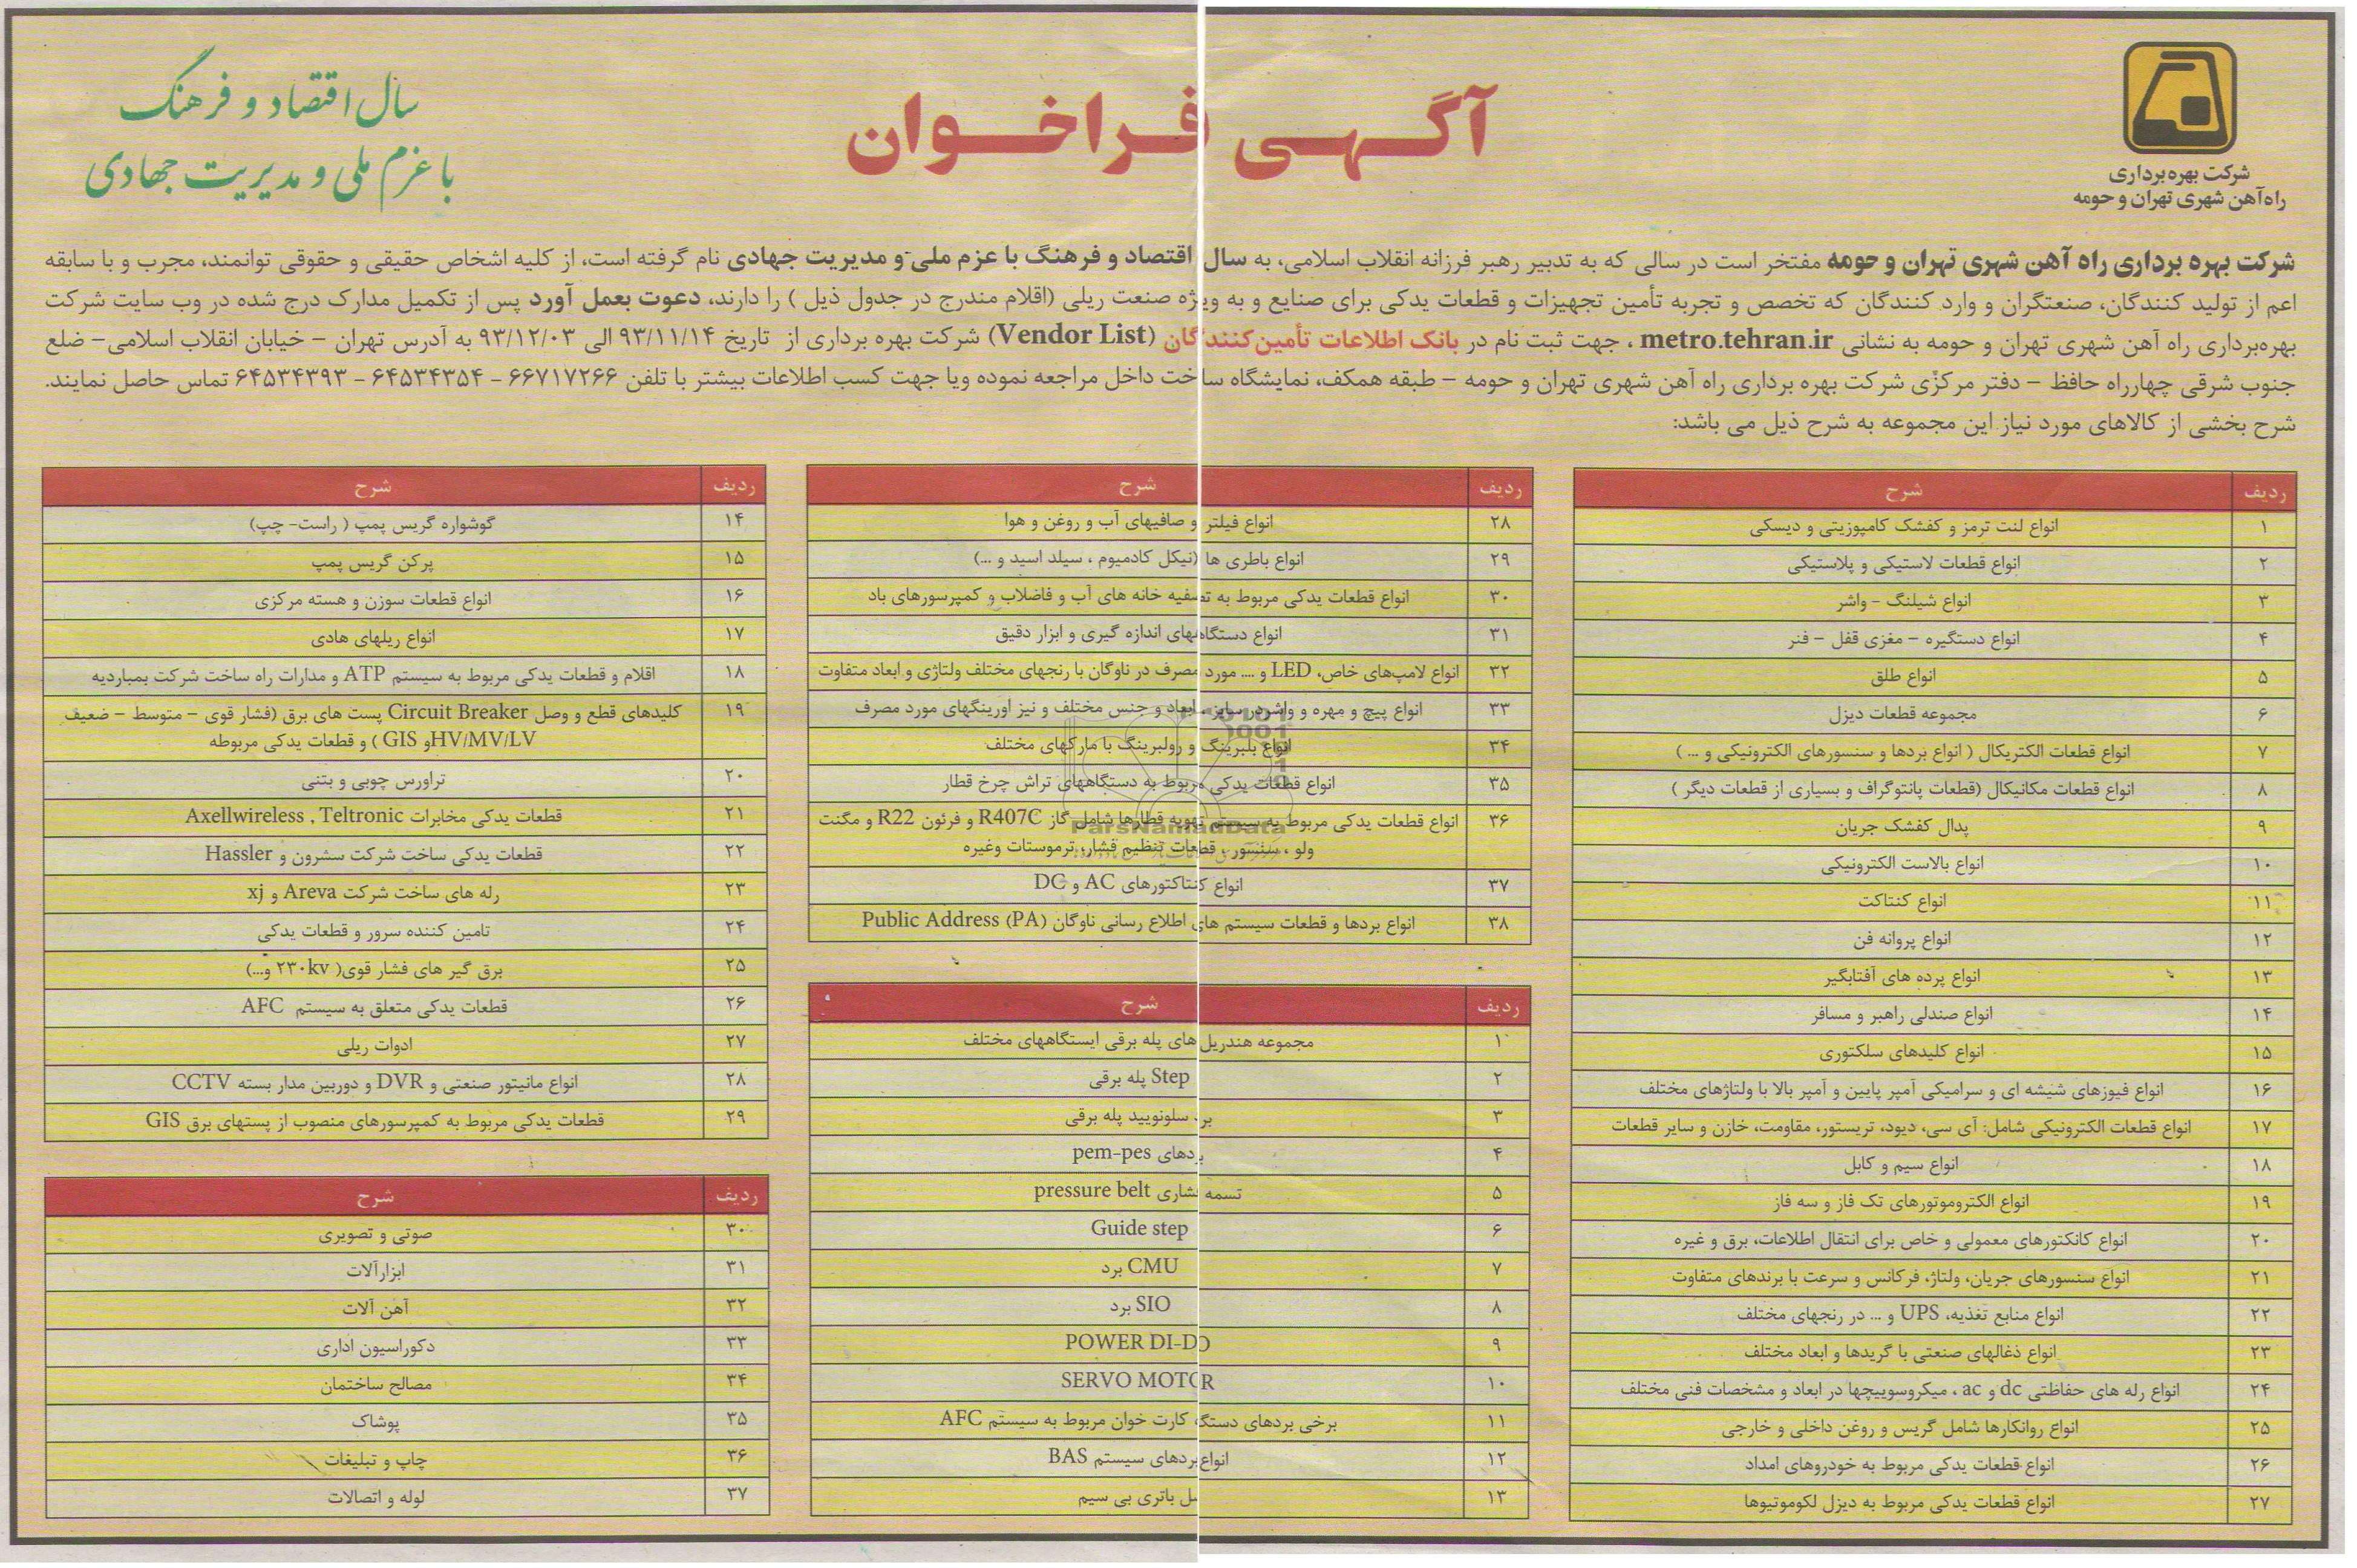 شرکت بهره‌برداری
راه‌آهن شهری تهران و حومه
آگهی فراخوان
سال اقتصاد و فرهنگ
با عزم ملی و مدیریت جهادی
شرکت بهره برداری راه آهن شهری تهران و حومه مفتخر است در سالی که به تدبیر رهبر فرزانه انقلاب اسلامی، به سال اقتصاد و فرهنگ با عزم ملی و مدیریت جهادی نام گرفته است، از کلیه اشخاص حقیقی و حقوقی توانمند، مجرب و با سابقه
اعم از تولید کنندگان، صنعتگران و وارد کنندگان که تخصص و تجربه تأمین تجهیزات و قطعات یدکی برای صنایع و به ویژه صنعت ریلی (اقلام مندرج در جدول ذیل ) را دارند، دعوت بعمل آورد پس از تکمیل مدارک درج شده در وب سایت شرکت
بهره‌برداری راه آهن شهری تهران و حومه به نشانی metro.tehran.ir ، جهت ثبت نام در بانک اطلاعات تأمین‌کنندگان (Vendor List) شرکت بهره برداری از تاریخ ۹۳/۱۱/۱۴ الی ۹۳/۱۲/۰۳ به آدرس تهران – خیابان انقلاب اسلامی– ضلع
جنوب شرقی چهارراه حافظ – دفتر مرکزی شرکت بهره برداری راه آهن شهری تهران و حومه – طبقه همکف، نمایشگاه ساخت داخل مراجعه نموده ویا جهت کسب اطلاعات بیشتر با تلفن ۶۶۷۱۷۲۶۶ – ۶۴۵۳۴۳۵۴ – ۶۴۵۳۴۳۹۳ تماس حاصل نمایند.
شرح بخشی از کالاهای مورد نیاز این مجموعه به شرح ذیل می باشد:
ردیف شرح
۱ انواع لنت ترمز و کفشک کامپوزیتی و دیسکی
۲ انواع قطعات لاستیکی و پلاستیکی
۳ انواع شیلنگ – واشر
۴ انواع دستگیره – مغزی قفل – فنر
۵ انواع طلق
۶ مجموعه قطعات دیزل
۷ انواع قطعات الکتریکال ( انواع بردها و سنسورهای الکترونیکی و ... )
۸ انواع قطعات مکانیکال (قطعات پانتوگراف و بسیاری از قطعات دیگر )
۹ پدال کفشک جریان
۱۰ انواع بالاست الکترونیکی
۱۱ انواع کنتاکت
۱۲ انواع پروانه فن
۱۳ انواع پرده های آفتابگیر
۱۴ انواع صندلی راهبر و مسافر
۱۵ انواع کلیدهای سلکتوری
۱۶ انواع فیوزهای شیشه ای و سرامیکی آمپر پایین و آمپر بالا با ولتاژهای مختلف
۱۷ انواع قطعات الکترونیکی شامل: آی سی، دیود، تریستور، مقاومت، خازن و سایر قطعات
۱۸ انواع سیم و کابل
۱۹ انواع الکتروموتورهای تک فاز و سه فاز
۲۰ انواع کانکتورهای معمولی و خاص برای انتقال اطلاعات، برق و غیره
۲۱ انواع سنسورهای جریان، ولتاژ، فرکانس و سرعت با برندهای متفاوت
۲۲ انواع منابع تغذیه، UPS و ... در رنجهای مختلف
۲۳ انواع ذغالهای صنعتی با گریدها و ابعاد مختلف
۲۴ انواع رله های حفاظتی dc و ac ، میکروسوییچها در ابعاد و مشخصات فنی مختلف
۲۵ انواع روانکارها شامل گریس و روغن داخلی و خارجی
۲۶ انواع قطعات یدکی مربوط به خودروهای امداد
۲۷ انواع قطعات یدکی مربوط به دیزل لکوموتیوها
ردیف شرح
۲۸ انواع فیلتر و صافیهای آب و روغن و هوا
۲۹ انواع باطری ها (نیکل کادمیوم ، سیلد اسید و ...)
۳۰ انواع قطعات یدکی مربوط به تصفیه خانه های آب و فاضلاب و کمپرسورهای باد
۳۱ انواع دستگاههای اندازه گیری و ابزار دقیق
۳۲ انواع لامپ‌های خاص، LED و .... مورد مصرف در ناوگان با رنجهای مختلف ولتاژی و ابعاد متفاوت
۳۳ انواع پیچ و مهره و واشردر سایز ، ابعاد و جنس مختلف و نیز اورینگهای مورد مصرف
۳۴ انواع بلبرینگ و رولبرینگ با مارکهای مختلف
۳۵ انواع قطعات یدکی مربوط به دستگاههای تراش چرخ قطار
۳۶ انواع قطعات یدکی مربوط به سیستم تهویه قطارها شامل گاز R407C و فرئون R22 و مگنت
ولو ، سنسور ، قطعات تنظیم فشار، ترموستات وغیره
۳۷ انواع کنتاکتورهای AC و DC
۳۸ انواع بردها و قطعات سیستم های اطلاع رسانی ناوگان Public Address (PA)
ParsNamadData
ردیف شرح
۱ مجموعه هندریل های پله برقی ایستگاههای مختلف
۲ Step پله برقی
۳ برد سلونویید پله برقی
۴ بردهای pem-pes
۵ تسمه فشاری pressure belt
۶ Guide step
۷ برد CMU
۸ برد SIO
۹ POWER DI-DO
۱۰ SERVO MOTOR
۱۱ برخی بردهای دستگاه کارت خوان مربوط به سیستم AFC
۱۲ انواع بردهای سیستم BAS
۱۳ باتری بی سیم
ردیف شرح
۱۴ گوشواره گریس پمپ ( راست- چپ)
۱۵ پرکن گریس پمپ
۱۶ انواع قطعات سوزن و هسته مرکزی
۱۷ انواع ریلهای هادی
۱۸ اقلام و قطعات یدکی مربوط به سیستم ATP و مدارات راه ساخت شرکت بمباردیه
۱۹ کلیدهای قطع و وصل Circuit Breaker پست های برق (فشار قوی – متوسط – ضعیف
HV/MV/LVو GIS ) و قطعات یدکی مربوطه
۲۰ تراورس چوبی و بتنی
۲۱ قطعات یدکی مخابرات Axellwireless , Teltronic
۲۲ قطعات یدکی ساخت شرکت سشرون و Hassler
۲۳ رله های ساخت شرکت Areva و xj
۲۴ تامین کننده سرور و قطعات یدکی
۲۵ برق گیر های فشار قوی( ۲۳۰kv و...)
۲۶ قطعات یدکی متعلق به سیستم AFC
۲۷ ادوات ریلی
۲۸ انواع مانیتور صنعتی و DVR و دوربین مدار بسته CCTV
۲۹ قطعات یدکی مربوط به کمپرسورهای منصوب از پستهای برق GIS
ردیف شرح
۳۰ صوتی و تصویری
۳۱ ابزارآلات
۳۲ آهن آلات
۳۳ دکوراسیون اداری
۳۴ مصالح ساختمان
۳۵ پوشاک
۳۶ چاپ و تبلیغات
۳۷ لوله و اتصالات